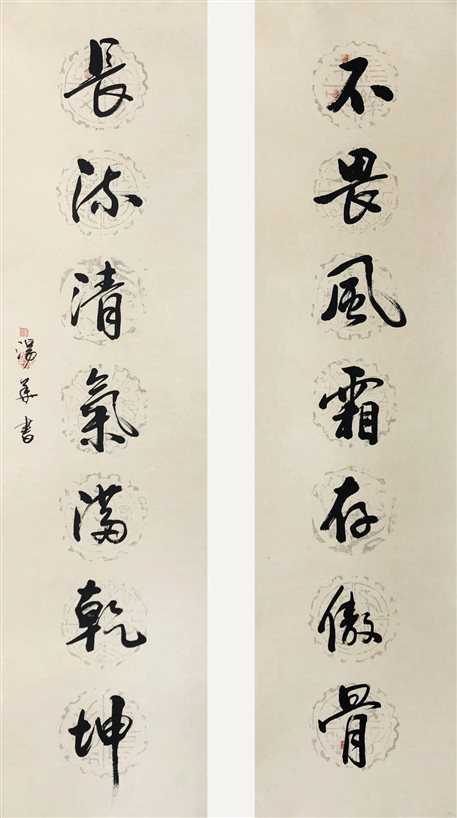 不畏風霜存傲骨
長流清氣滿乾坤
湯 書